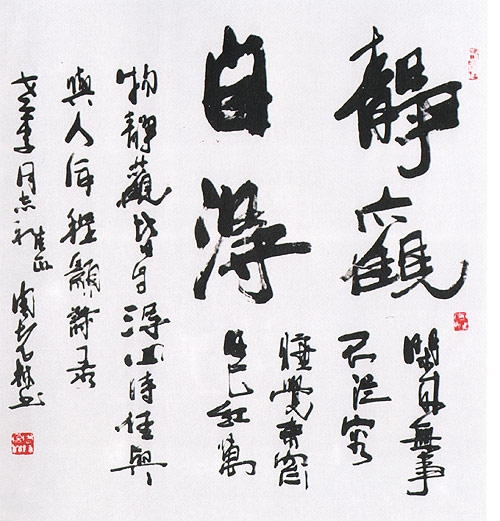 靜觀
自得
閑來無事
不從容
睡覺東窗
日已紅萬
物靜觀皆自得四時佳興
與人同程顥詩录
同志雅正周